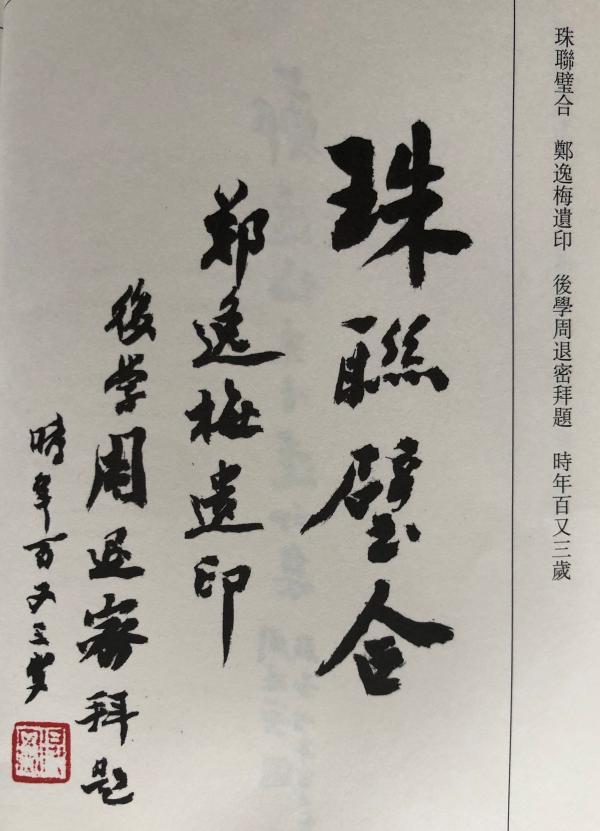 珠聯璧合　鄭逸梅遺印　後學周退密拜題　時年百又三歲
珠聯璧合
郑逸梅遺印
後学周退密拜題
時年百又三岁